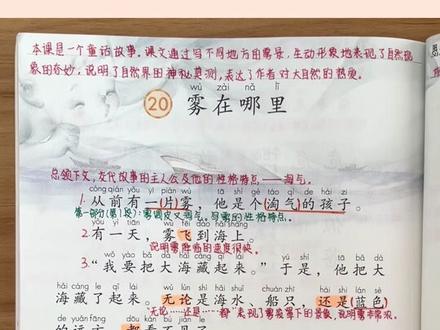 本课是一个童话故事。课文通过写不同地方的雾景，生动形象地表现了自然现
象的奇妙，说明了自然界的神秘莫测，表达了作者对大自然的热爱。
wù zài nǎ lǐ
20 雾在哪里
总领下文，交代故事的主人公及他的性格特点——淘气。
cóng qián yǒu yí piàn wù tā shì gè táo qì de hái zi
1. 从前有一(片)雾，他是个(淘气)的孩子。
第一部分(第1段)：雾调皮又淘气，写雾的性格特点。
yǒu yì tiān wù fēi dào hǎi shang
2. 有一天，雾飞到海上。
说明雾降临的速度很快。
wǒ yào bǎ dà hǎi cáng qǐ lái yú shì tā bǎ dà
3. “我要把大海藏起来。”于是，他把大
hǎi cáng le qǐ lái wú lùn shì hǎi shuǐ chuán zhī hái shì lán sè
海藏了起来。无论是海水、船只，还是(蓝色)
“无论……还是……都”表现了雾来得下的景象，说明雾非常浓。
de yuǎn fāng dōu kàn bú jiàn le
的远方，都看不见了